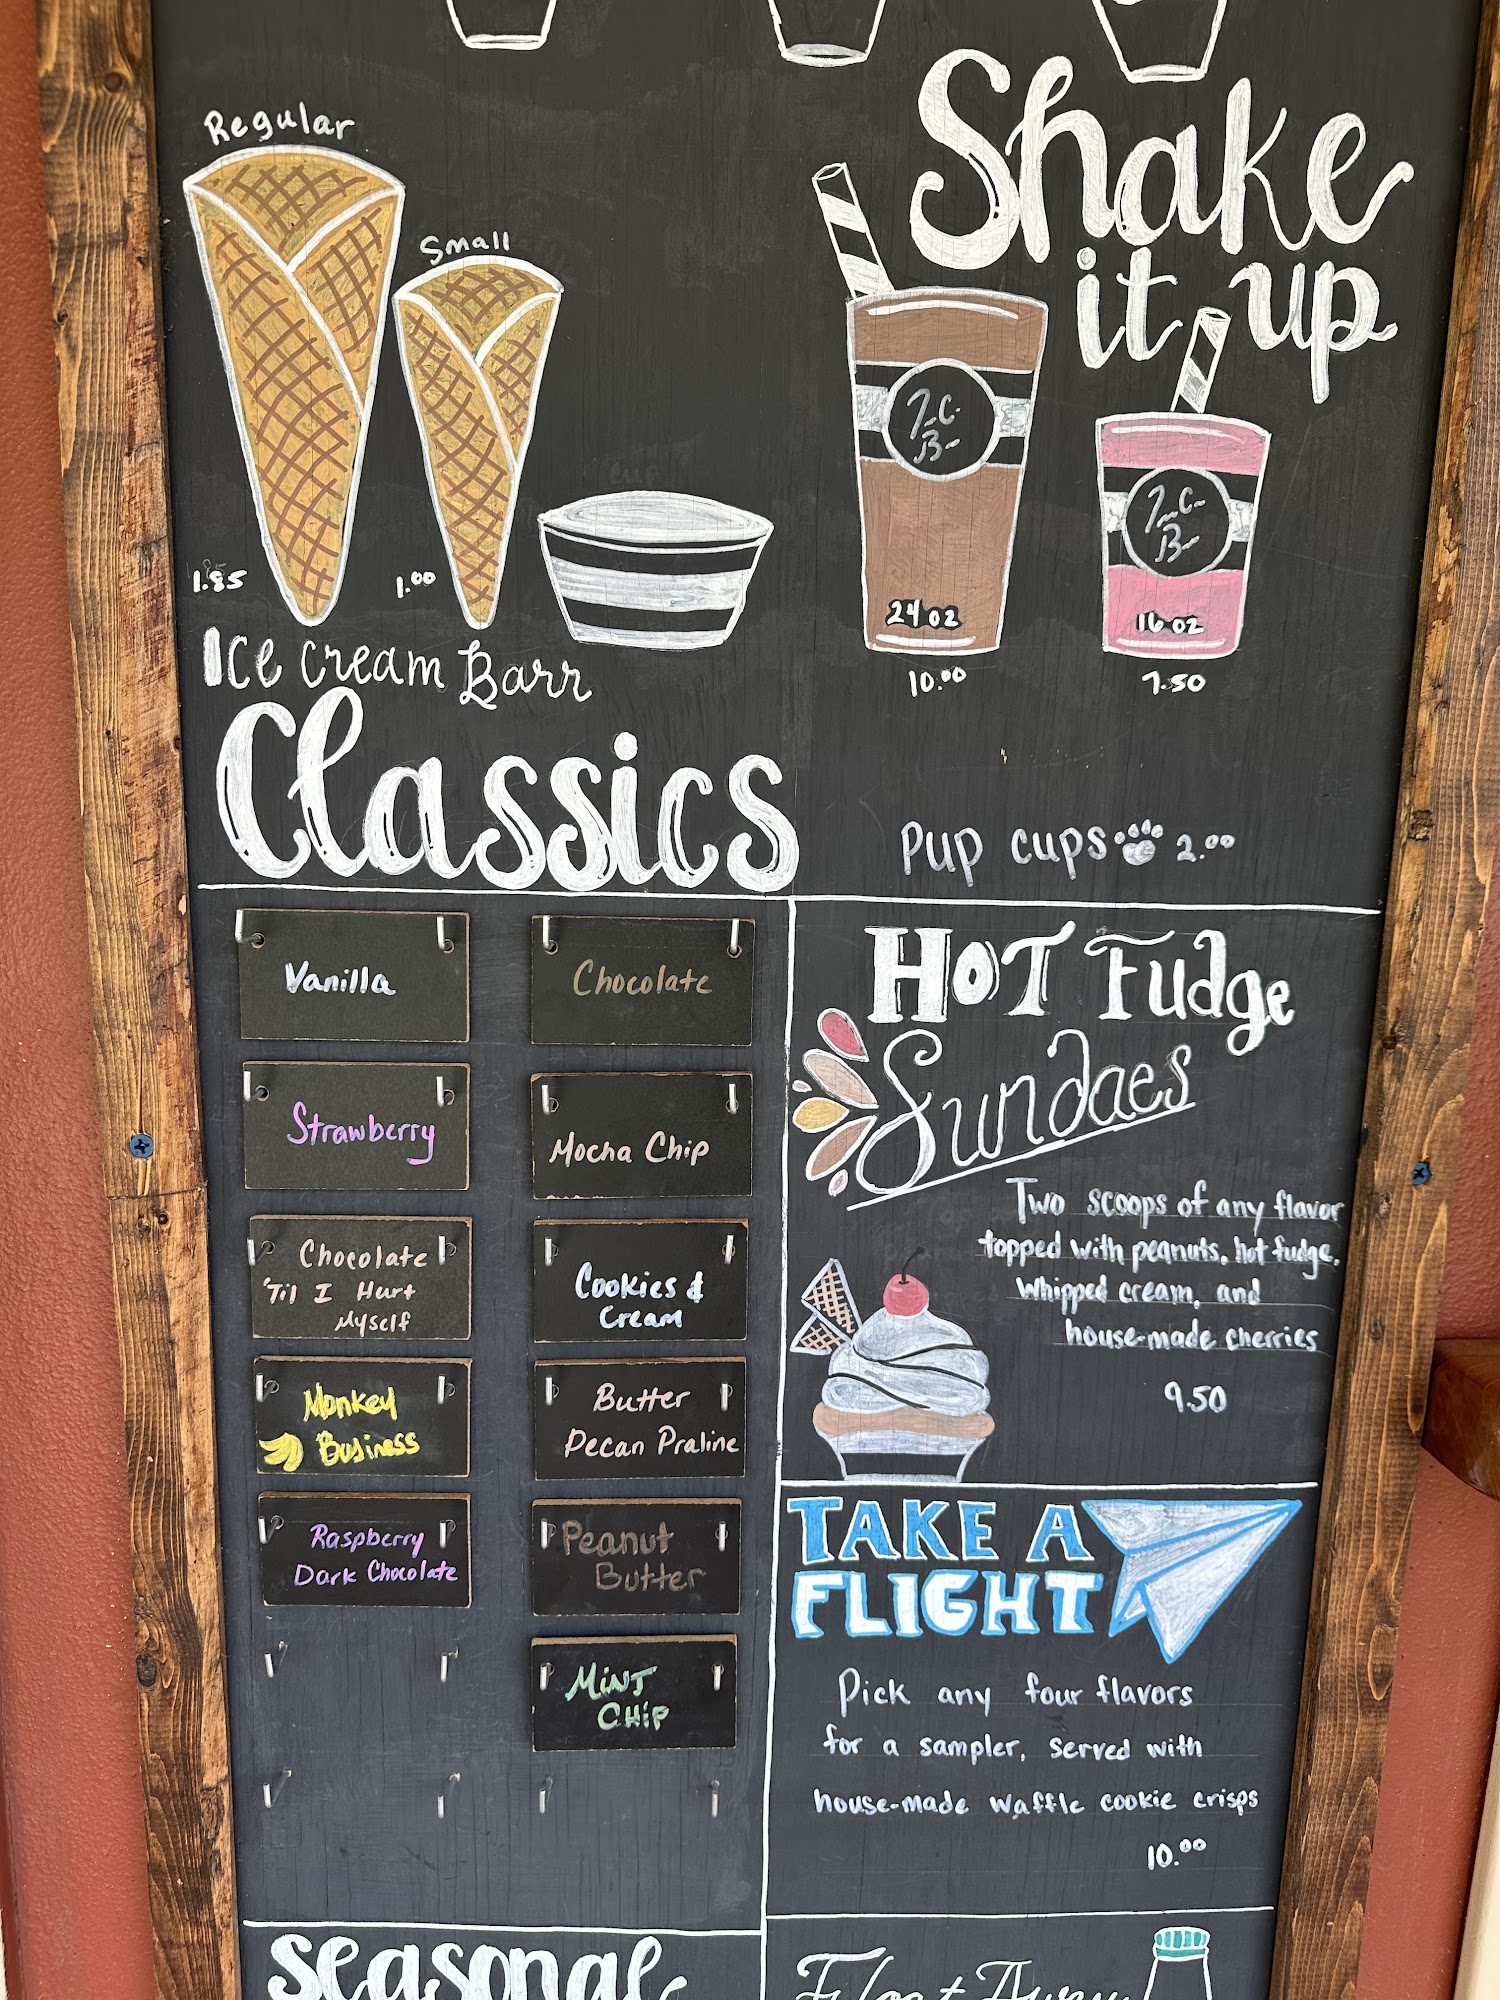 Regular
Small
1.85
1.00
Shake
it up
24 oz
16 oz
10.00
7.50
Ice Cream Barr
Classics
Pup cups 2.00
Vanilla
Chocolate
Strawberry
Mocha Chip
Chocolate
'Til I Hurt
Myself
Cookies &
Cream
Monkey
Business
Butter
Pecan Praline
Raspberry
Dark Chocolate
Peanut
Butter
Mint
Chip
Hot Fudge
Sundaes
Two scoops of any flavor
topped with peanuts, hot fudge,
whipped cream, and
house-made cherries
9.50
TAKE A
FLIGHT
Pick any four flavors
for a sampler, served with
house-made waffle cookie crisps
10.00
seasonal
Float Away